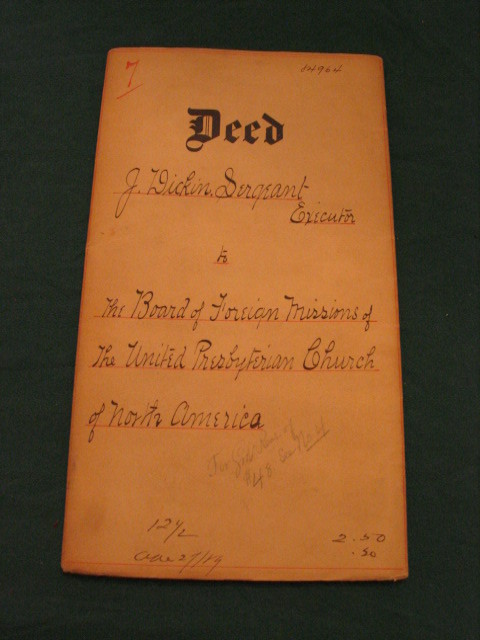 7
14964
Deed
J. Dickin. Sergeant
Executor
to
The Board of Foreign Missions of
The United Presbyterian Church
of North America
48
12 1/2
2.50
.50
27/19